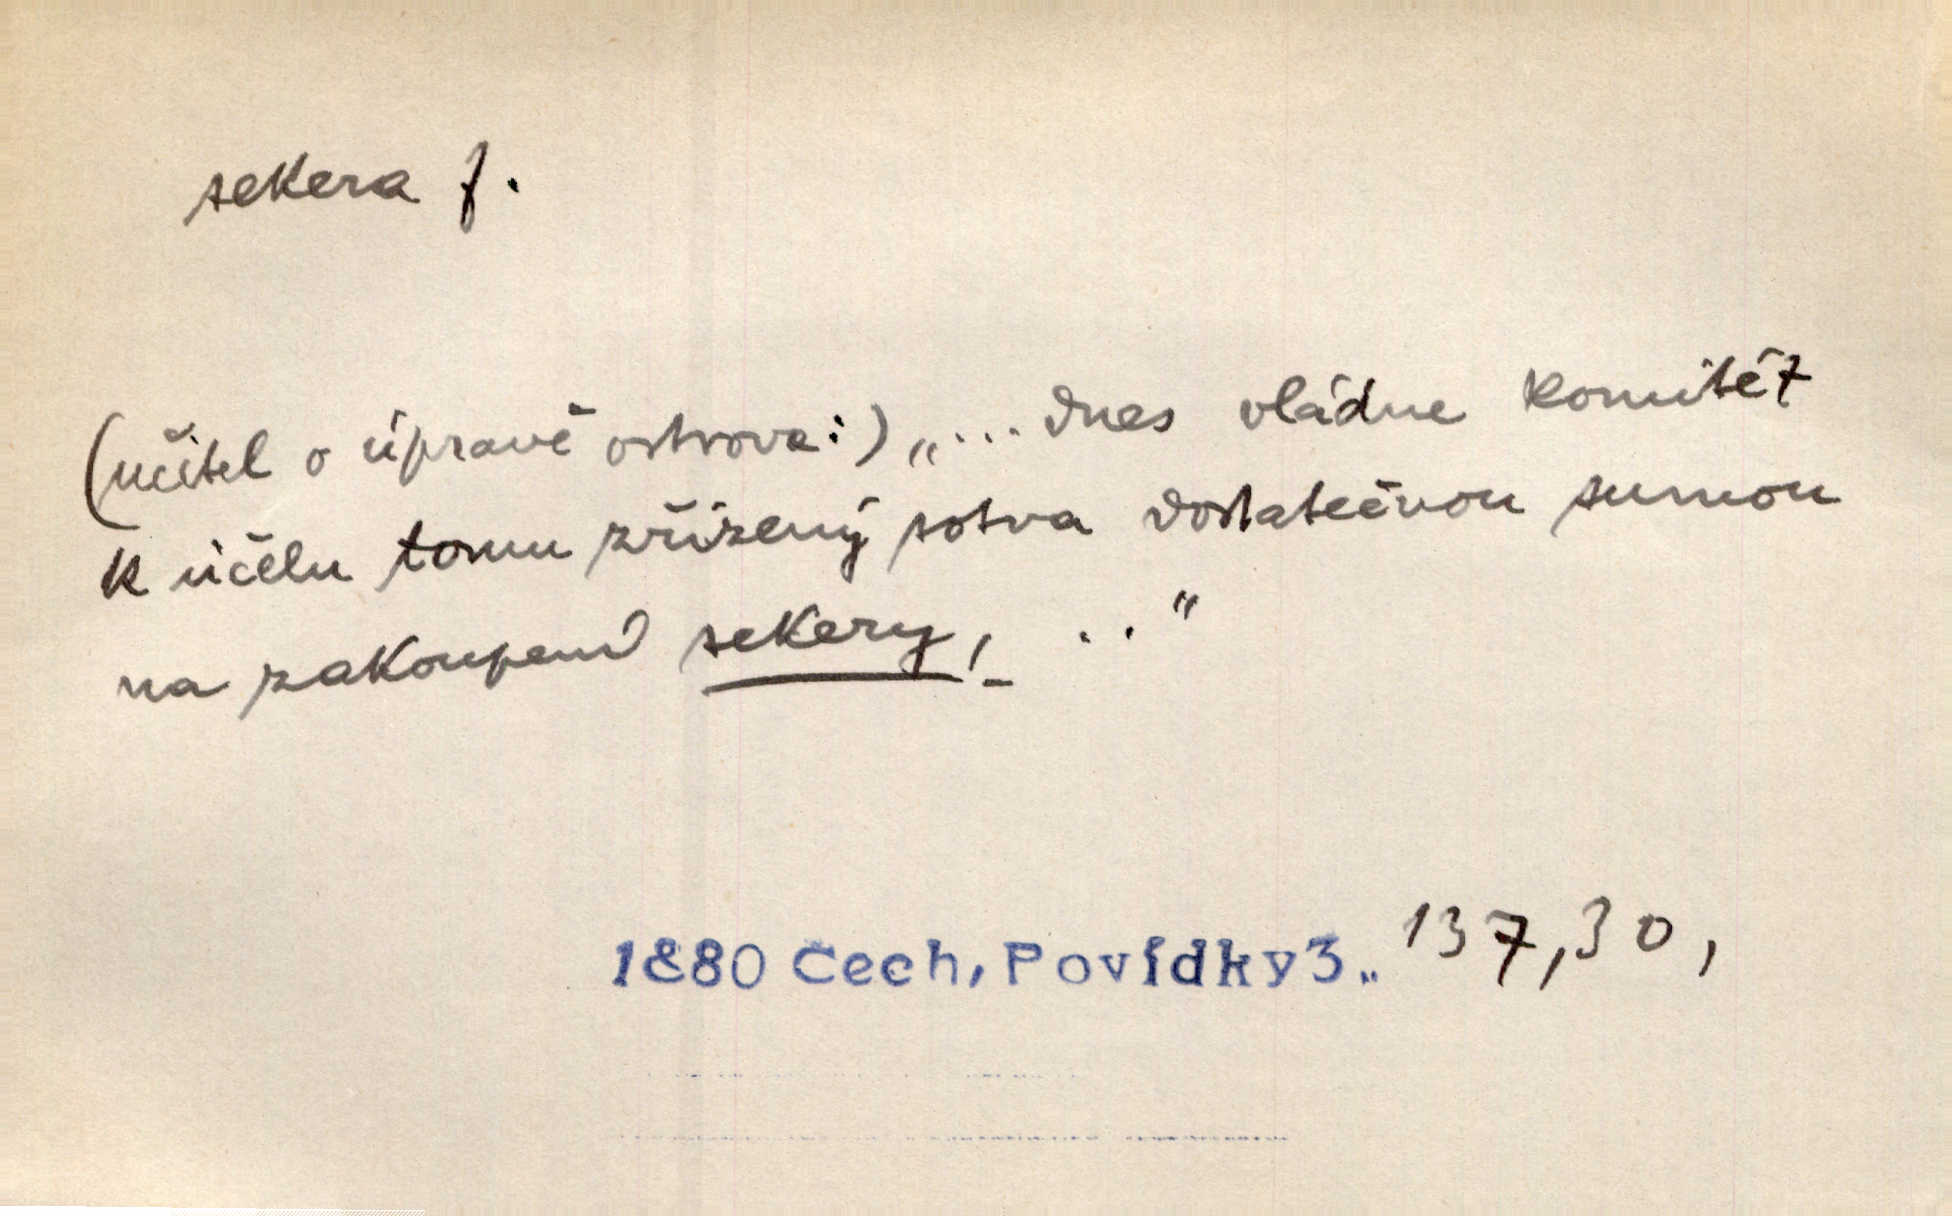 sekera f.
(učitel o úpravě ostrova:) „... dnes vládne komitét
k účelu tomu zřízený sotva dostatečnou sumou
na zakoupení sekery, .."
1880 Čech, Povídky 3.. 137,30,